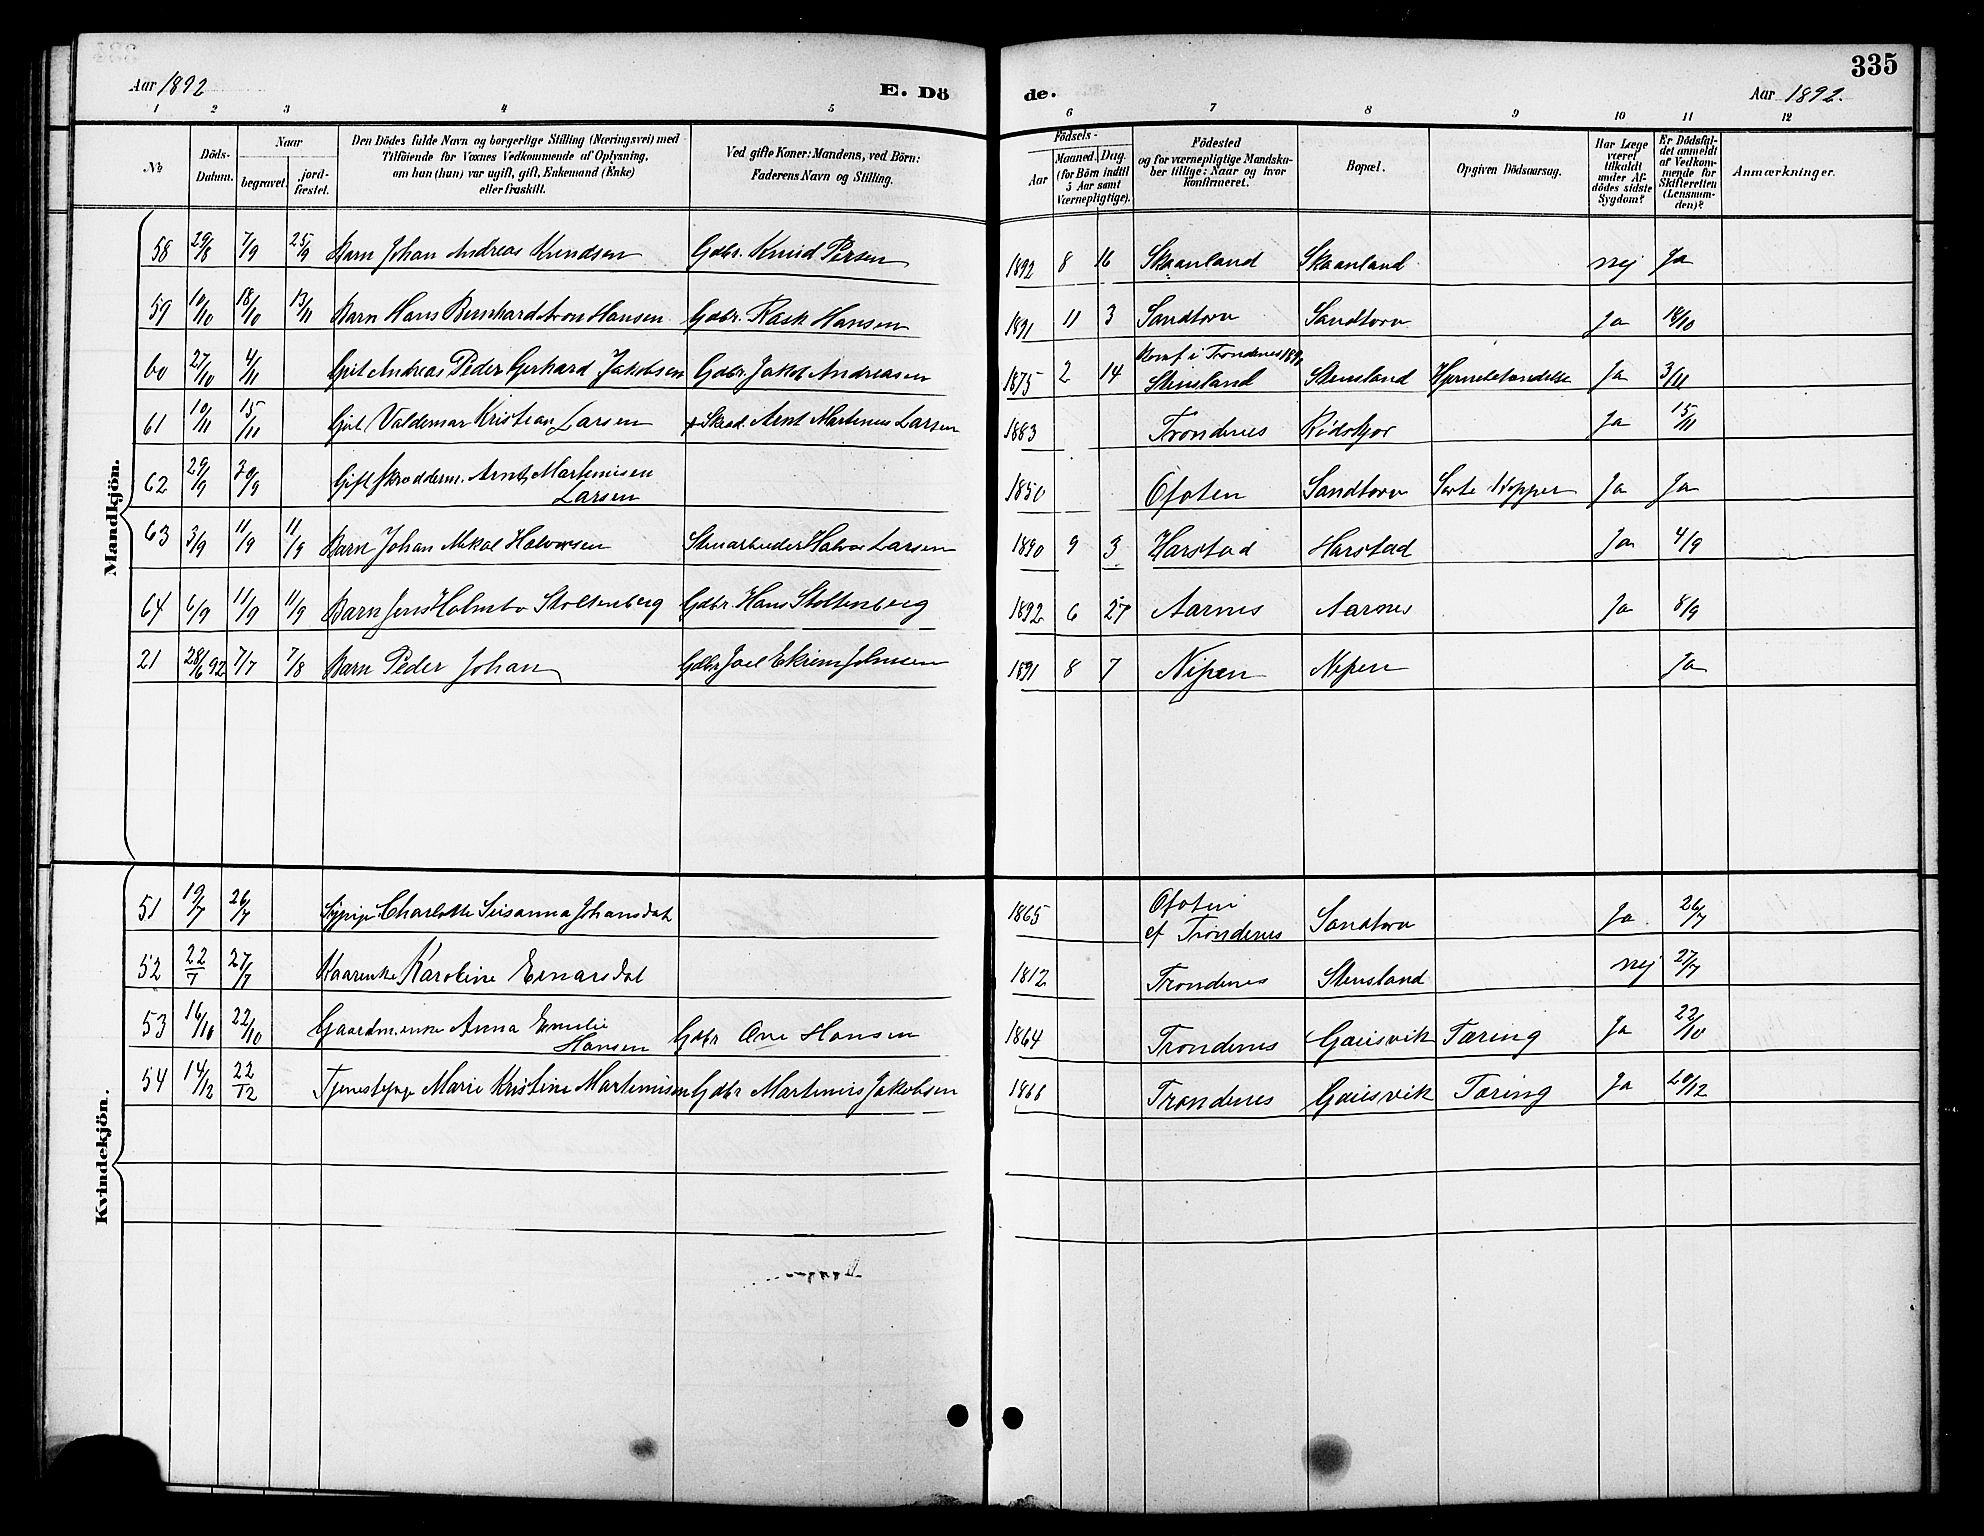 335
Aar 1892
E. Dö
de.
Aar 1892.
1 2 3 4 5
6 7 8 9 10 11 12
No
Döds-Datum.
Naar
begravet.
jord-fæstet.
Den Dödes fulde Navn og borgerlige Stilling (Næringsvei) med
Tilföiende for Voxnes Vedkommende af Oplysning,
om han (hun) var ugift, gift, Enkemand (Enke)
eller fraskilt.
Ved gifte Koner: Mandens, ved Börn:
Faderens Navn og Stilling.
Födsels-
Aar
Maaned. Dag.
(for Börn indtil
5 Aar samt
Værnepligtige).
Födested
og for værnepligtige Mandska-
ber tillige: Naar og hvor
konfirmeret.
Bopæl.
Opgiven Dödsaarsag.
Har Læge
været
tilkaldt
under Af-
dödes sidste
Sygdom?
Er Dödsfal-
det anmeldt
af Vedkom-
mende for
Skifteretten
(Lensman-
den)?
Anmærkninger.
Mandkjön.
58 29/8 7/9 25/9 Barn Johan Andreas Knudsen Gdbr. Knud Persen 1892 8 16 Skaanland Skaanland nej Ja
59 10/10 18/10 13/11 Barn Hans Bernhard Aron Hansen Gdbr. Rask Hansen 1891 11 3 Sandtorv Sandtorv Ja 18/10
60 27/10 4/11 Andreas Peder Gerhard Jakobsen Gdbr. Jakob Andreasen 1875 2 14 Konf i Trondenes Stensland Stensland Hjernebetændelse Ja 3/11
61 10/11 15/11 Valdemar Kristian Larsen Skræd. Arnt Martinus Larsen 1883 Trondenes Rödskjær Ja 15/11
62 29/9 30/9 Gift skrædderm. Arnt Martinusen
Larsen 1850 Ofoten Sandtorv Sorte Kopper Ja Ja
63 3/9 11/9 11/9 Barn Johan Mikal Halvorsen Stenarbeider Halvor Larsen 1890 9 3 Harstad Harstad Ja 4/9
64 6/9 11/9 11/9 Barn Jens Holmbo Stoltenberg Gdbr. Hans Stoltenberg 1892 6 27 Aarnes Aarnes Ja 8/9
21 28/6 92 7/7 7/8 Barn Peder Johan Gdbr Joel Johnsen 1891 8 7 Nipen Nipen Ja
Kvindekjön.
51 19/7 26/7 Sypige Charlotte Susanna Johansdat 1865 Ofoten
ef Trondenes Sandtorv Ja. 26/7
52 22/7 27/7 Kaarenke Karoline Enarsdat 1812 Trondenes Stensland nej 27/7
53 16/10 22/10 Gaardm.enke Anna Emilie
Hansen Gdbr Ove Hansen 1864 Trondenes Gausvik Tæring Ja 22/10
54 14/12 22/12 Tjenestepige Marie Kristine Martinusen Gdbr Martinus Jakobsen 1868 Trondenes Gausvik Tæring Ja 20/12